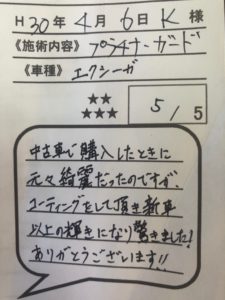 H30年4月6日K様
《施術内容》プラチナ・ガード
《車種》エクシーガ
★★
★★★
5/5
中古車で購入したときに
元々綺麗だったのですが、
コーティングをして頂き新車
以上の輝きになり驚きました!
ありがとうございます!!